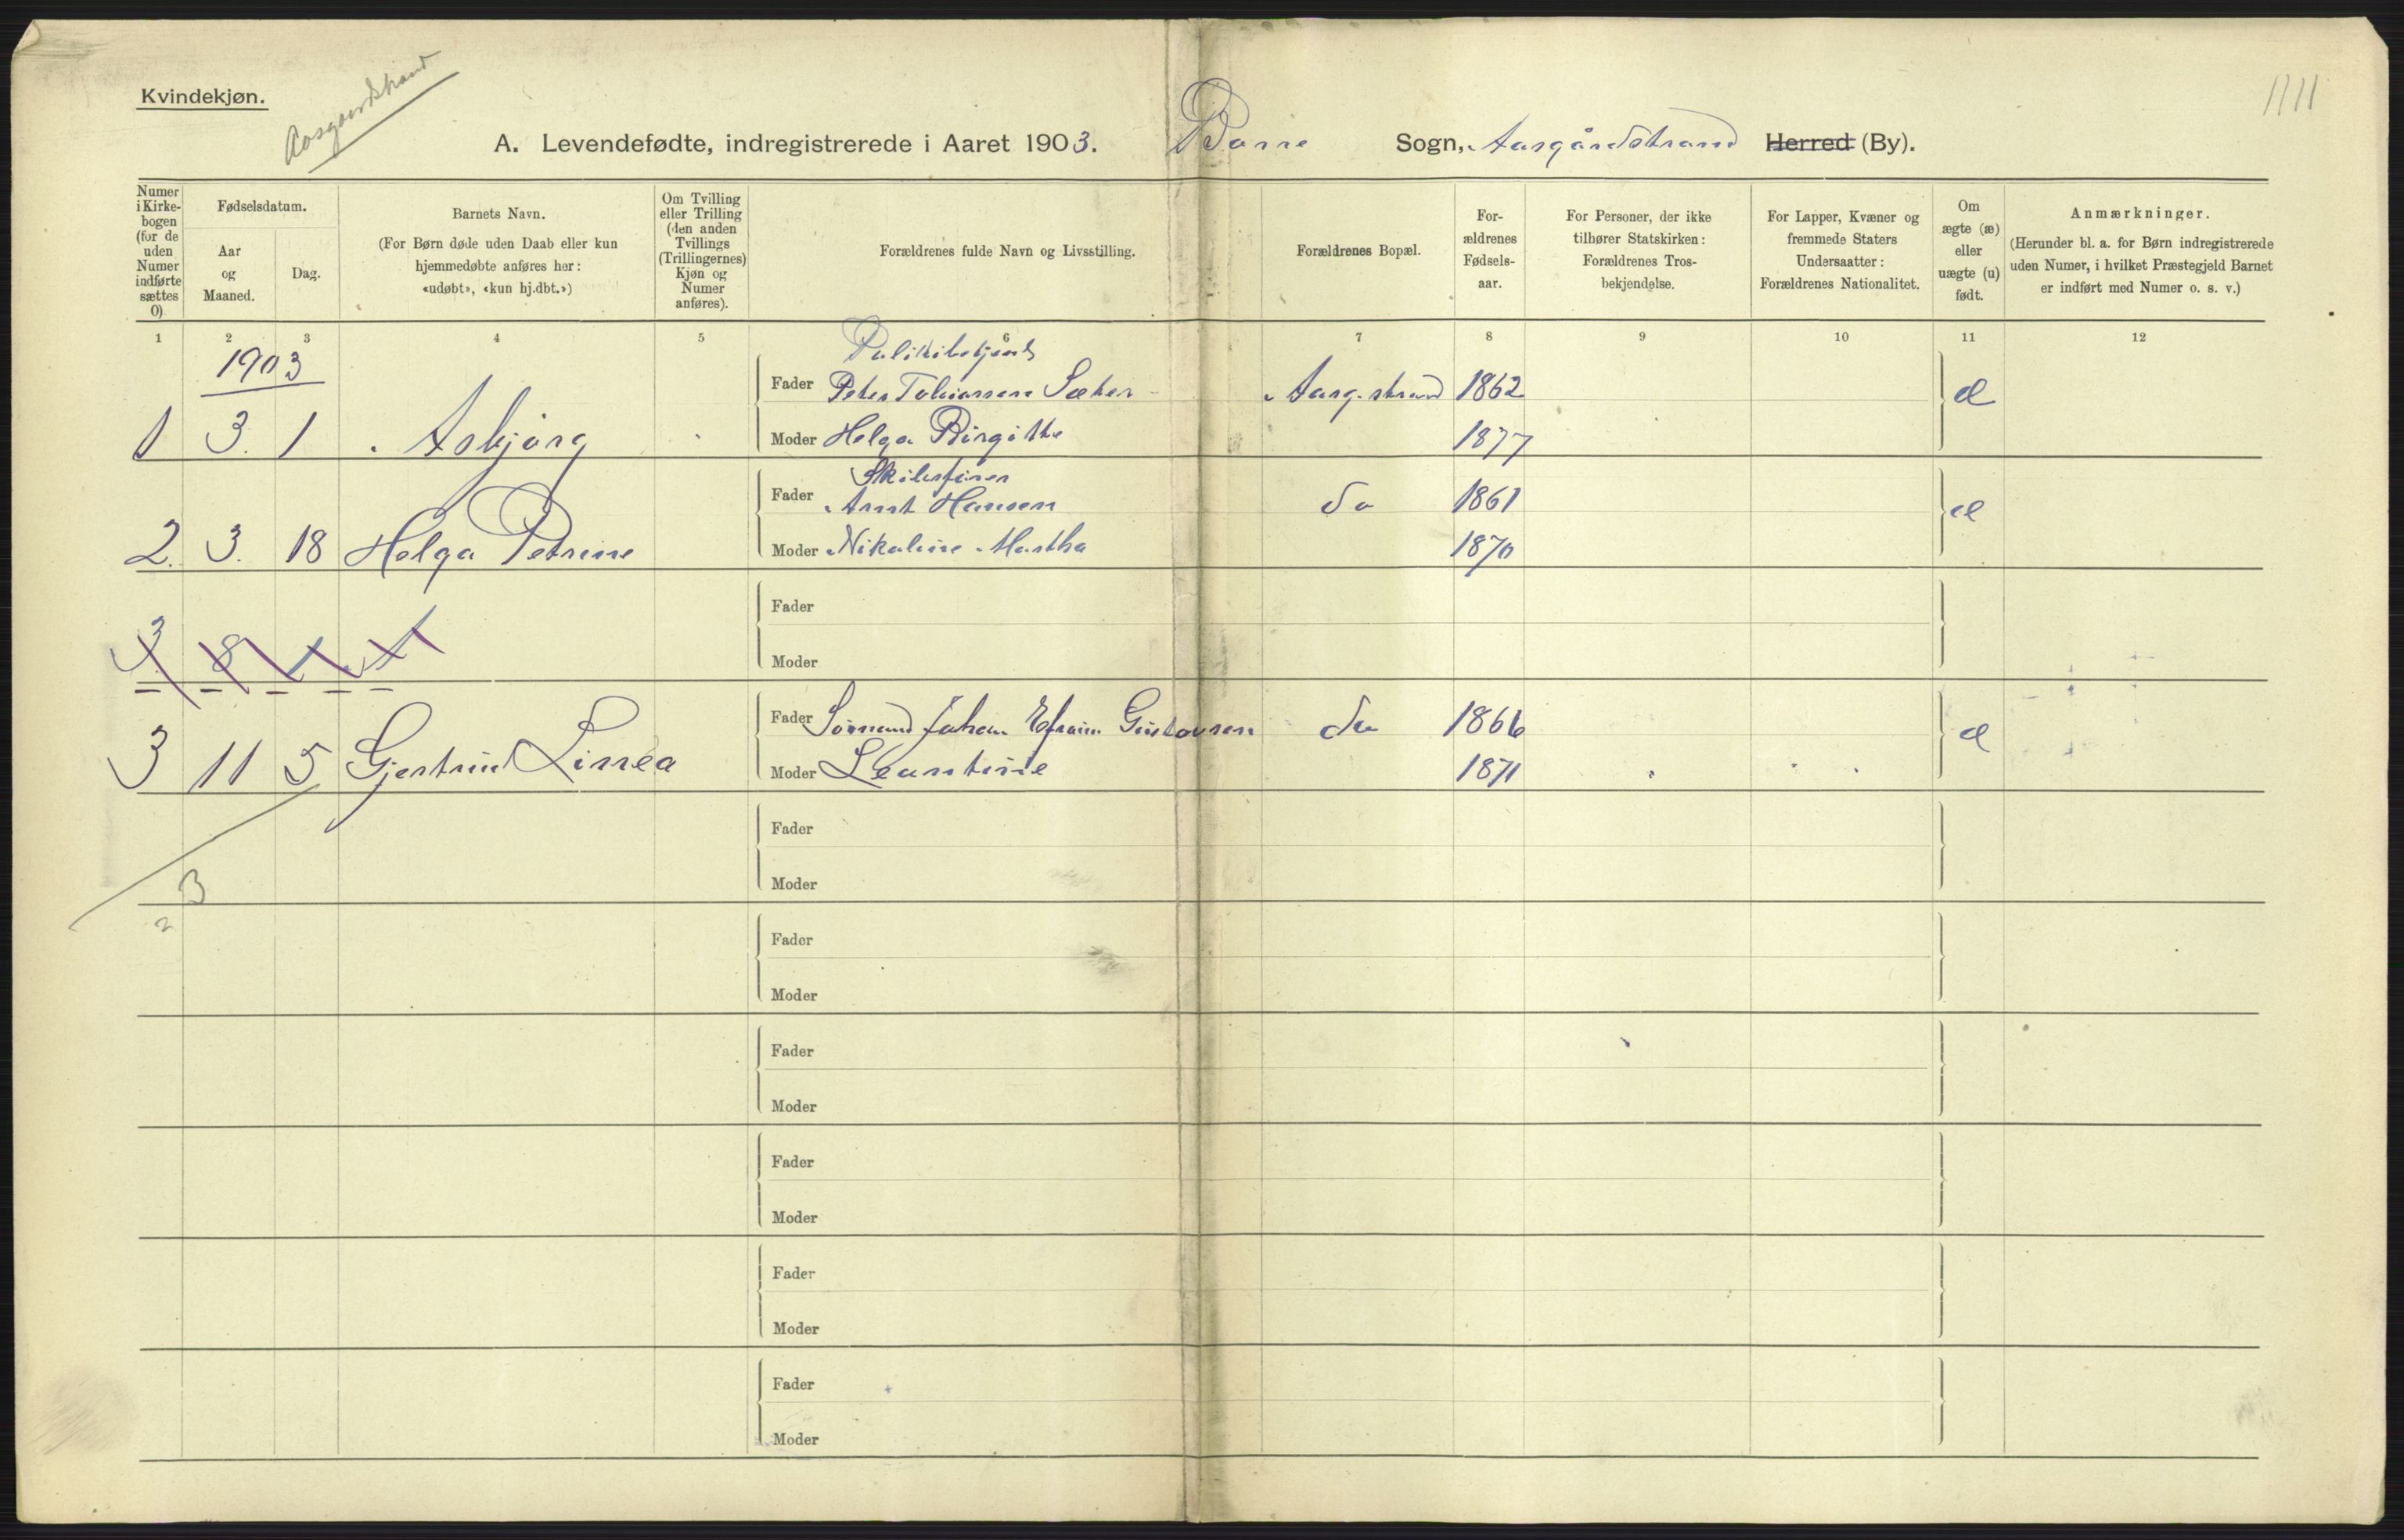 Kvindekjøn.
Aasgaardstrand
1111
A. Levendefødte, indregistrerede i Aaret 1903. Borre Sogn, Aasgårdstrand Herred (By).
Numer i Kirkebogen (for de uden Numer indførte sættes 0)
Fødselsdatum.
Aar og Maaned.
Dag.
Barnets Navn.
(For Børn døde uden Daab eller kun hjemmedøbte anføres her: «udøbt», «kun hj.dbt.»)
Om Tvilling eller Trilling (den anden Tvillings (Trillingernes) Kjøn og Numer anføres).
Forældrenes fulde Navn og Livsstilling.
Forældrenes Bopæl.
For-ældrenes Fødsels-aar.
For Personer, der ikke tilhører Statskirken: Forældrenes Tros-bekjendelse.
For Lapper, Kvæner og fremmede Staters Undersaatter: Forældrenes Nationalitet.
Om ægte (æ) eller uægte (u) født.
Anmærkninger.
(Herunder bl. a. for Børn indregistrerede uden Numer, i hvilket Præstegjeld Barnet er indført med Numer o. s. v.)
1 2 3 4 5 6 7 8 9 10 11 12
1903
Politibetjent
Fader Peter Tobiassen Sæther Aasg.strand 1862 æ
1 3. 1 Asbjørg Moder Helga Birgitte 1877
Skibsfører
Fader Arnt Hansen do 1861 æ
2. 3. 18 Helga Petrine Moder Nikoline Martha 1870
Fader
3 8 1 A
Moder
Fader Sømand Johan Efraim Gustavsen do 1866 æ
3 11 5 Gjertrud Linnea Moder Leontine 1871
Fader
3 Moder
2
Fader
Moder
Fader
Moder
Fader
Moder
Fader
Moder
Fader
Moder